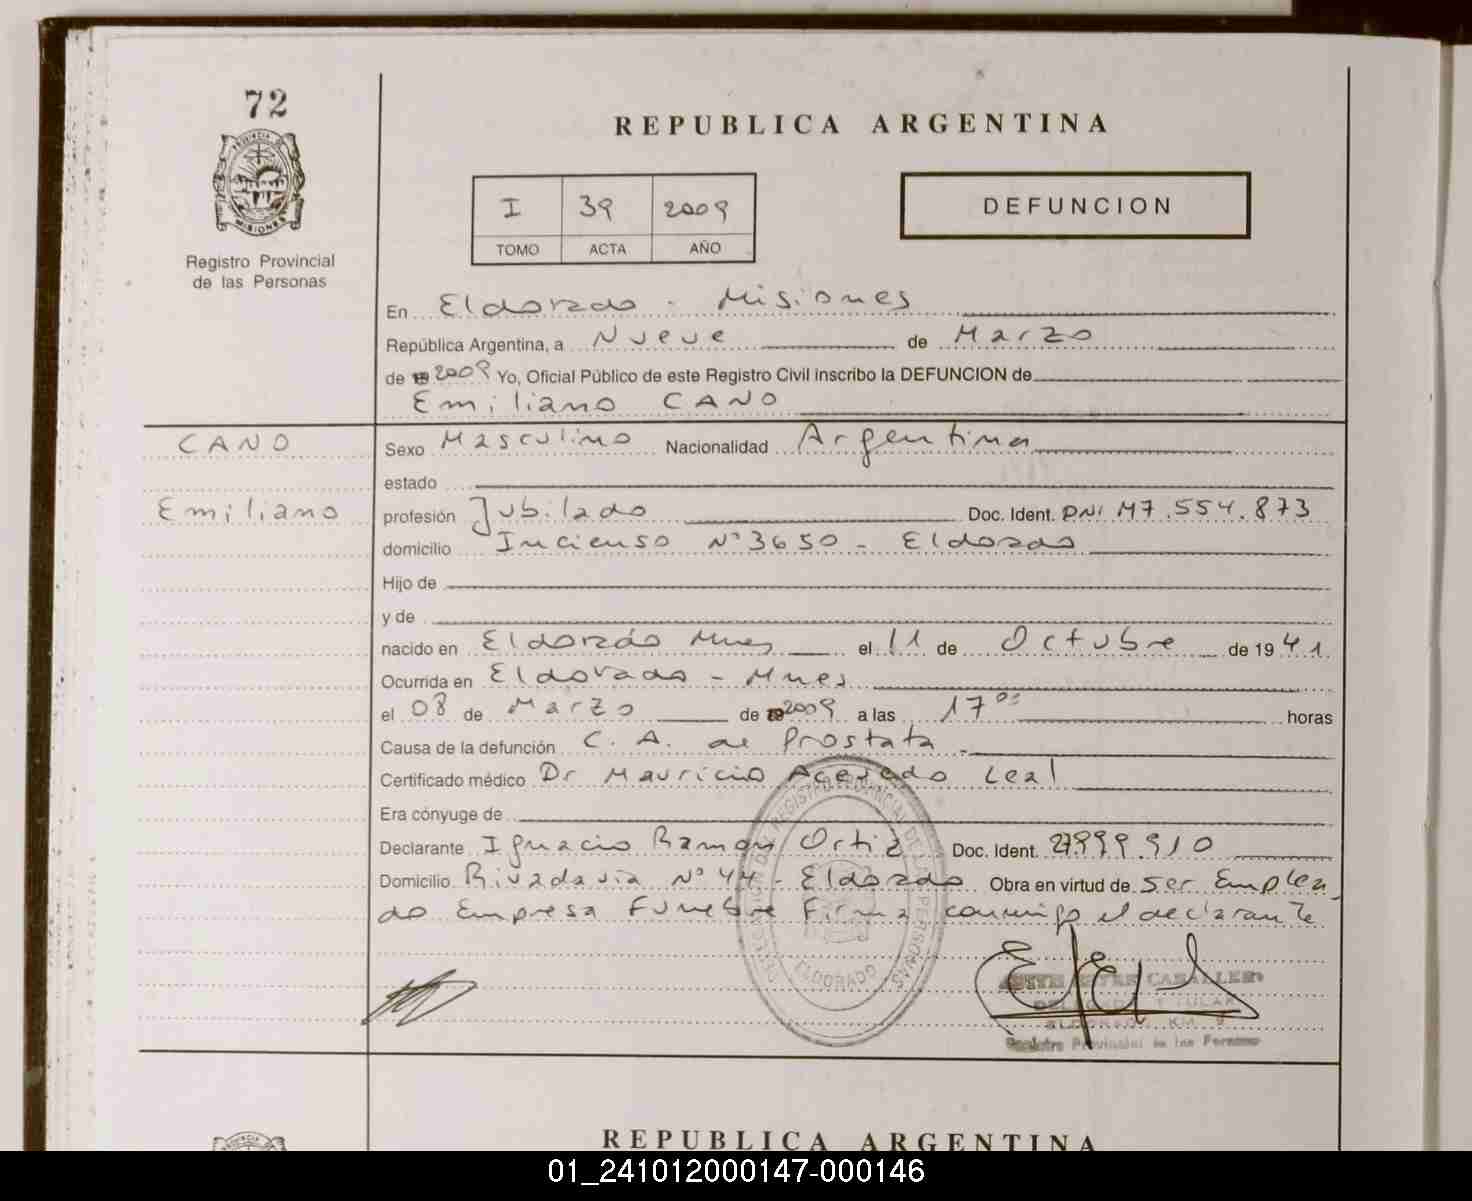 72
REPUBLICA ARGENTINA
I 39 2009
TOMO ACTA AÑO
DEFUNCION
PROVINCIA DE MISIONES
Registro Provincial
de las Personas
En Eldorado - Misiones
República Argentina, a Nueve de Marzo
de 2009 Yo, Oficial Público de este Registro Civil inscribo la DEFUNCION de
Emiliano CANO
CANO
Emiliano
Sexo Masculino Nacionalidad Argentina
estado
profesión Jubilado Doc. Ident. DNI M7.554.873
domicilio Incienso N°3650 - Eldorado
Hijo de
y de
nacido en Eldorado Mnes el 11 de Octubre de 1941
Ocurrida en Eldorado - Mnes
el 08 de Marzo de 2009 a las 17 00 horas
Causa de la defunción C. A. de Prostata
Certificado médico Dr Mauricio Acevedo Leal
Era cónyuge de
Declarante Ignacio Ramon Ortiz Doc. Ident. 27.999.910
Domicilio Rivadavia N° 44 - Eldorado Obra en virtud de ser Emplea
do Empresa Funebre Firma conmigo el declarante
REGISTRO PROVINCIAL DE LAS PERSONAS
ELDORADO
CABALLERO
ELDORADO KM 9
Registro Provincial de las Personas
REPUBLICA ARGENTINA
01_241012000147-000146